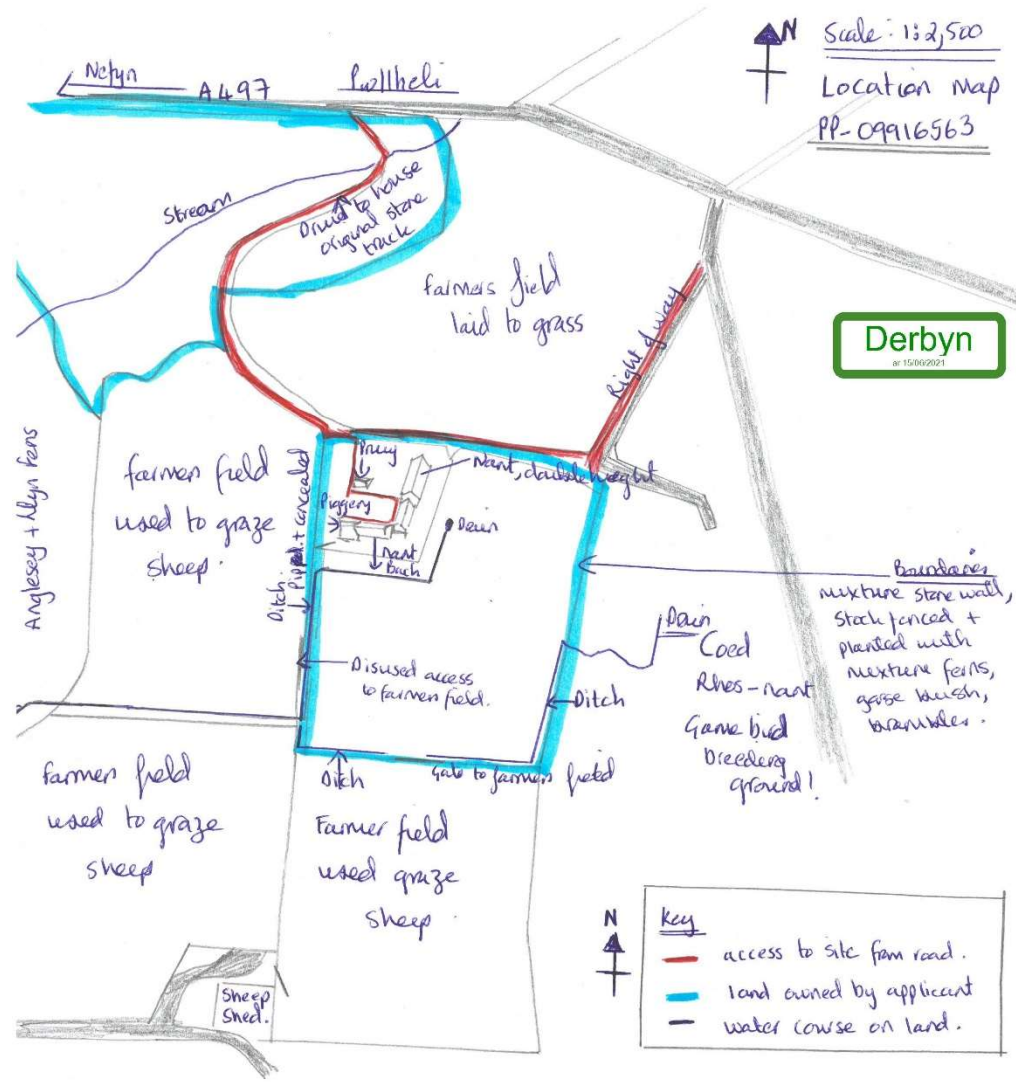 Nefyn
A497
Pwllheli
N
Scale: 1:2,500
Location Map
PP-09916563
Stream
Drive to house
original stone
track
farmers field
laid to grass
Right of way
Derbyn
ar 15/06/2021
Anglesey + Llyn Fens
farmer field
used to graze
sheep.
Ditch. Piped + concealed
Privy
Piggery
Nant, double height
Drain
Nant
Bach
Disused access
to farmer field.
Boundaries
mixture stone wall,
stock fenced +
planted with
mixture ferns,
gorse bush,
brambles.
Drain
Coed
Rhos-nant
Game bird
breeding
ground!
Ditch
Ditch
Gate to farmers field
farmer field
used to graze
sheep
Farmer field
used graze
sheep.
Sheep
Shed.
N
Key
access to site from road.
land owned by applicant
water course on land.